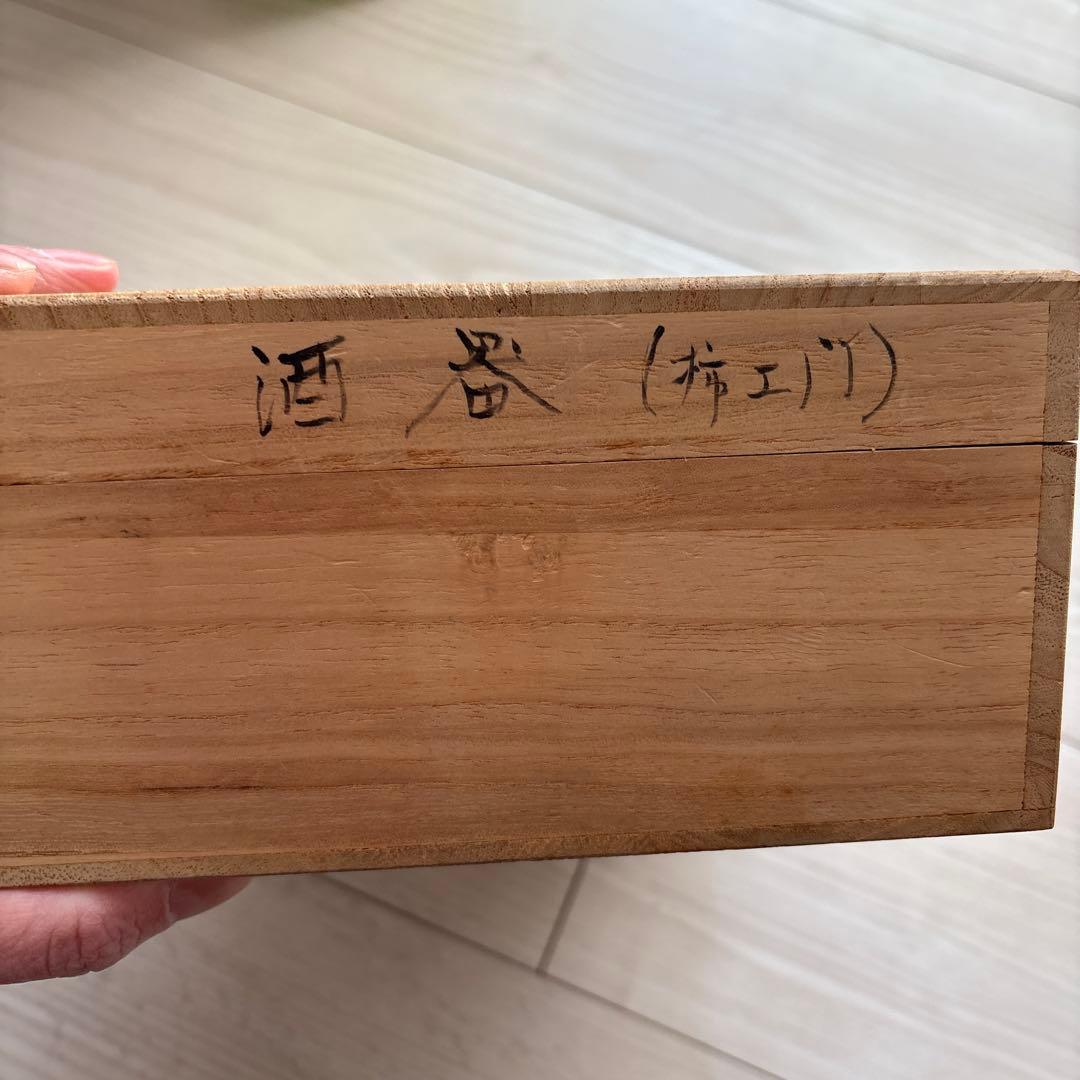 酒器(柿エ門)